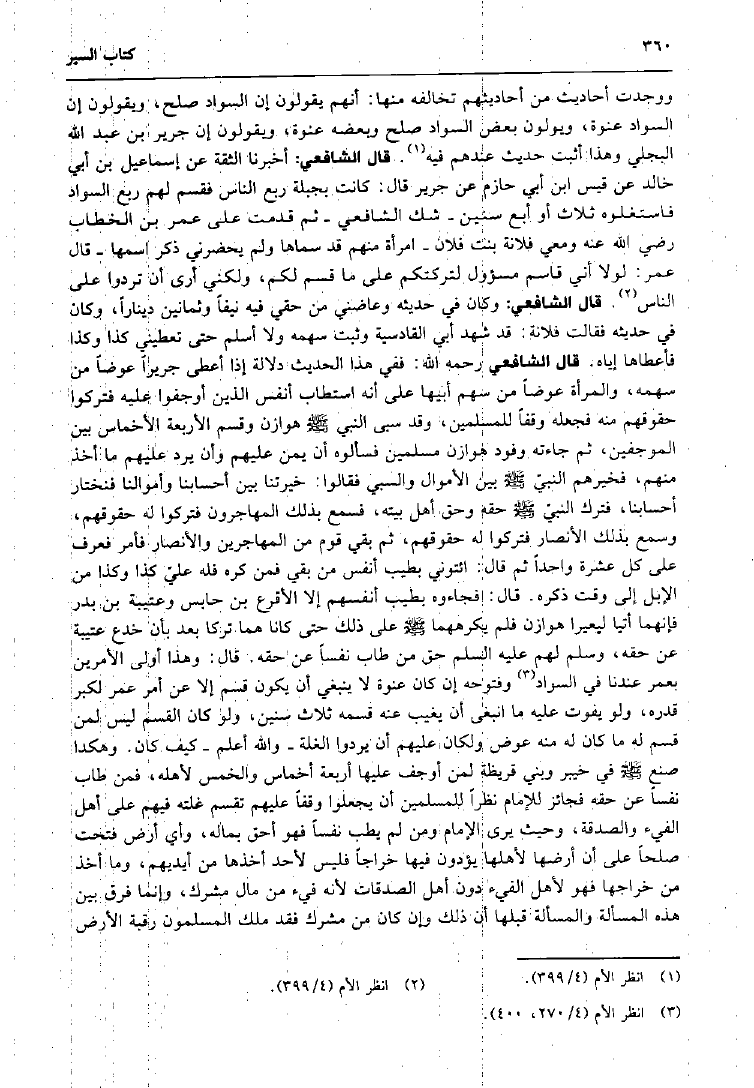 ٣٦٠
كتاب السير
ووجدت أحاديث من أحاديثهم تخالفه منها: أنهم يقولون إن السواد صلح، ويقولون إن
السواد عنوة، ويولون بعض السواد صلح وبعضه عنوة، ويقولون إن جرير بن عبد الله
البجلي وهذا أثبت حديث عندهم فيه(١). قال الشافعي: أخبرنا الثقة عن إسماعيل بن أبي
خالد عن قيس ابن أبي حازم عن جرير قال: كانت بجيلة ربع الناس فقسم لهم ربع السواد
فاستغلوه ثلاث أو أبع سنين ـ شك الشافعي ـ ثم قدمت على عمر بن الخطاب
رضي الله عنه ومعي فلانة بنت فلان ـ امرأة منهم قد سماها ولم يحضرني ذكر اسمها ـ قال
عمر: لولا أني قاسم مسؤول لتركتكم على ما قسم لكم، ولكني أرى أن تردوا على
الناس(٢). قال الشافعي: وكان في حديثه وعاضني من حقي فيه نيفاً وثمانين ديناراً، وكان
في حديثه فقالت فلانة: قد شهد أبي القادسية وثبت سهمه ولا أسلم حتى تعطيني كذا وكذا
فأعطاها إياه. قال الشافعي رحمه الله: ففي هذا الحديث دلالة إذا أعطى جريراً عوضاً من
سهمه، والمرأة عوضاً من سهم أبيها على أنه استطاب أنفس الذين أوجفوا عليه فتركوا
حقوقهم منه فجعله وقفاً للمسلمين، وقد سبى النبي ﷺ هوازن وقسم الأربعة الأخماس بين
الموجفين، ثم جاءته وفود هوازن مسلمين فسألوه أن يمن عليهم وأن يرد عليهم ما أخذ
منهم، فخيرهم النبيّ ﷺ بين الأموال والسبي فقالوا: خيرتنا بين أحسابنا وأموالنا فنختار
أحسابنا، فترك النبيّ ﷺ حقه وحق أهل بيته، فسمع بذلك المهاجرون فتركوا له حقوقهم،
وسمع بذلك الأنصار فتركوا له حقوقهم، ثم بقي قوم من المهاجرين والأنصار فأمر فعرف
على كل عشرة واحداً ثم قال: ائتوني بطيب أنفس من بقي فمن كره فله عليّ كذا وكذا من
الإبل إلى وقت ذكره. قال: فجاءوه بطيب أنفسهم إلا الأقرع بن حابس وعتيبة بن بدر
فإنهما أتيا ليعيرا هوازن فلم يكرههما ﷺ على ذلك حتى كانا هما تركا بعد بأن خدع عتيبة
عن حقه، وسلم لهم عليه السلم حق من طاب نفساً عن حقه. قال: وهذا أولى الأمرين
بعمر عندنا في السواد(٣) وفتوحه إن كان عنوة لا ينبغي أن يكون قسم إلا عن أمر عمر لكبر
قدره، ولو يفوت عليه ما انبغى أن يغيب عنه قسمه ثلاث سنين، ولو كان القسم ليس لمن
قسم له ما كان له منه عوض ولكان عليهم أن يردوا الغلة ـ والله أعلم ـ كيف كان. وهكذا
صنع ﷺ في خيبر وبني قريظة لمن أوجف عليها أربعة أخماس والخمس لأهله، فمن طاب
نفساً عن حقه فجائز للإمام نظراً للمسلمين أن يجعلوا وقفاً عليهم تقسم غلته فيهم على أهل
الفيء والصدقة، وحيث يرى الإمام ومن لم يطب نفساً فهو أحق بماله، وأي أرض فتحت
صلحاً على أن أرضها لأهلها يؤدون فيها خراجاً فليس لأحد أخذها من أيديهم، وما أخذ
من خراجها فهو لأهل الفيء دون أهل الصدقات لأنه فيء من مال مشرك، وإنما فرق بين
هذه المسألة والمسألة قبلها أن ذلك وإن كان من مشرك فقد ملك المسلمون رقبة الأرض
(١) انظر الأم (٣٩٩/٤).
(٢) انظر الأم (٣٩٩/٤).
(٣) انظر الأم (٢٧٠/٤، ٤٠٠).